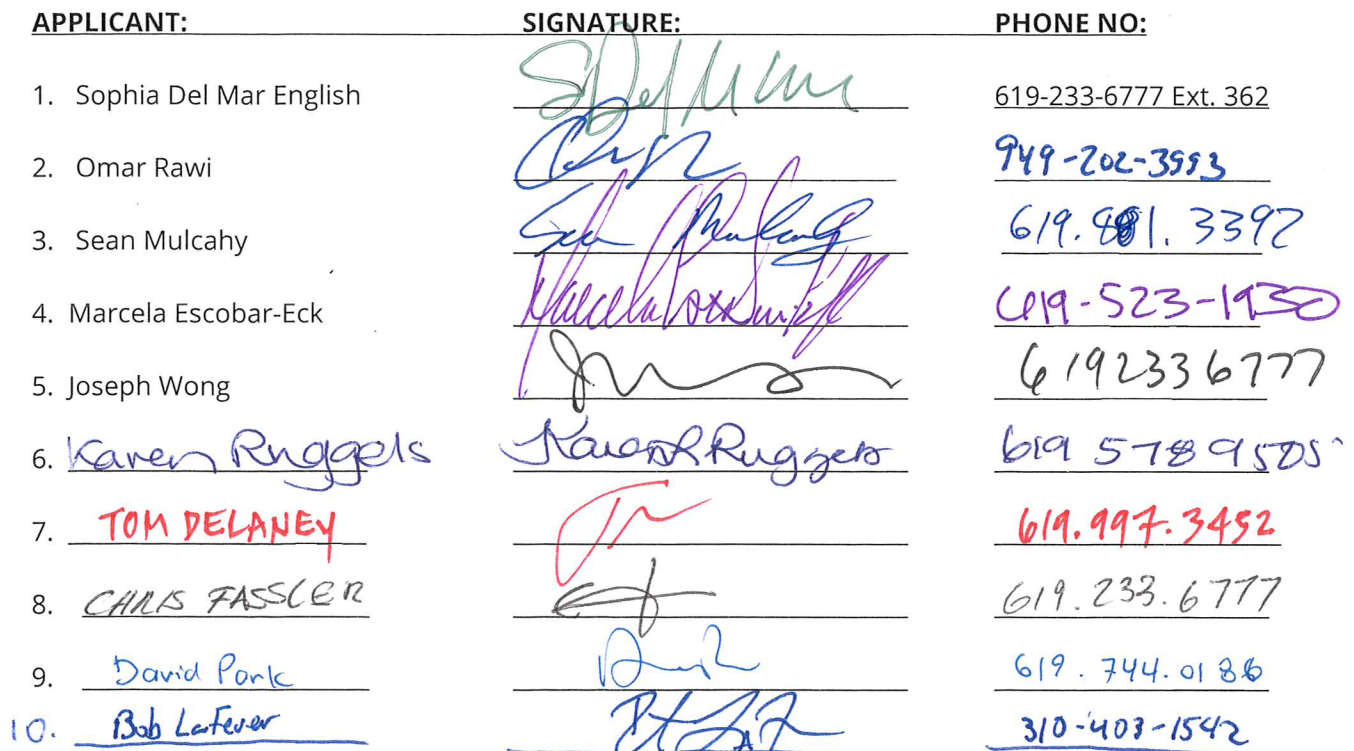 APPLICANT: SIGNATURE: PHONE NO:
1. Sophia Del Mar English SDel Mar 619-233-6777 Ext. 362
2. Omar Rawi 949-202-3993
3. Sean Mulcahy Sean Mulcahy 619.881.3392
4. Marcela Escobar-Eck Marcela Escobar-Eck 619-523-1930
5. Joseph Wong 6192336777
6. Karen Ruggels Karen L Ruggels 619 578 9505
7. TOM DELANEY 619.997.3452
8. CHRIS FASSLER 619.233.6777
9. David Pork 619.744.0186
10. Bob LaFever 310-403-1542